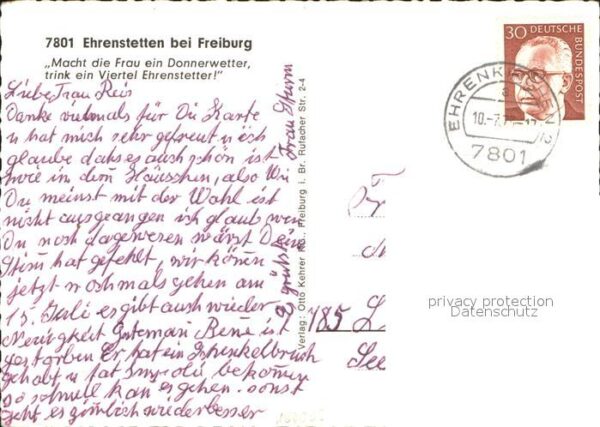 7801 Ehrenstetten bei Freiburg
„Macht die Frau ein Donnerwetter,
trink ein Viertel Ehrenstetter!"
Liebe Frau Reis
Danke vielmals für Di Karte
u hat mich sehr gefreut u ich
glaube dahs es auch schön ist
wie in dem Häuschen, also Wi
Du meinst mit der Wahl ist
nicht ausgegangen ich glaub wen
Du noch dagewesen wärst Dein
Stim hat gefehlt, wir könen
jetzt nochmals gehen am
15. Juli es gibt auch wieder
Neuigkeit Gutemari Bene ist
gestorben Er hat ein Schenkelbruch
gehabt u hat bekomen
so schnell kan es gehen. sonst
geht es zimlich wieder besser
Es grüst Frau Sturm
Verlag: Otto Kehrer KG., Freiburg i. Br. Rufacher Str. 2-4
30 DEUTSCHE BUNDESPOST
EHRENKIRCHEN 2
a
10.-7.
7801
785 L
See
privacy protection
Datenschutz